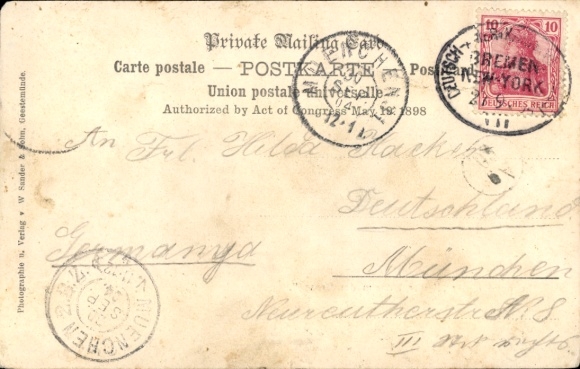 Private Mailing Card
Carte postale — POSTKARTE — Postcard
Union postale universelle.
Authorized by Act of Congress May 19, 1898
10 10
DEUTSCHES REICH
DEUTSCH
BREMEN-
NEW-YORK
VII
MUENCHEN
An Frl. Hilda Hacker
Deutschland
Germanya
München
Neureutherstr. 8
III
rechts
MUENCHEN
Photographie u. Verlag v W Sander & Sohn, Geestemünde.